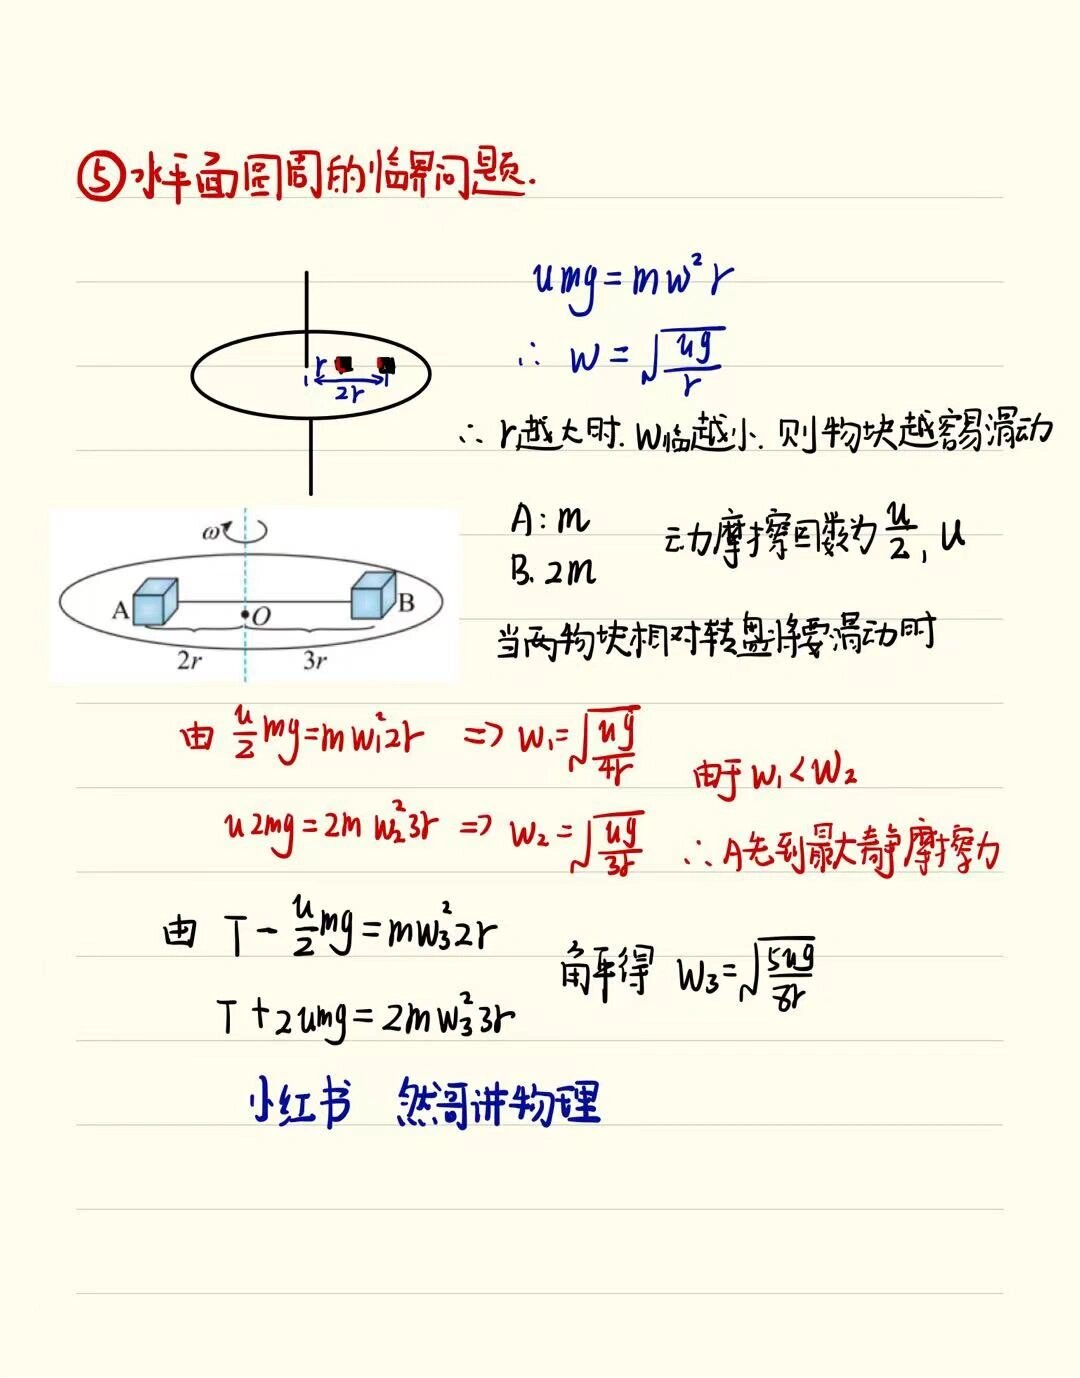 ⑤水平面圆周的临界问题.
umg=mw²r
∴ w=√(ug/r)
r
2r
∴ r越大时.w临越小.则物块越容易滑动
ω
A
O
B
2r 3r
A:m
B.2m
动摩擦因数为u/2,u
当两物块相对转盘将要滑动时
由 u/2 mg=mw₁²2r => w₁=√(ug/4r)
由于w₁<w₂
u2mg=2mw₂²3r => w₂=√(ug/3r)
∴A先到最大静摩擦力
由 T-u/2 mg=mw₃²2r
T+2umg=2mw₃²3r
解得 w₃=√(5ug/8r)
小红书 然哥讲物理